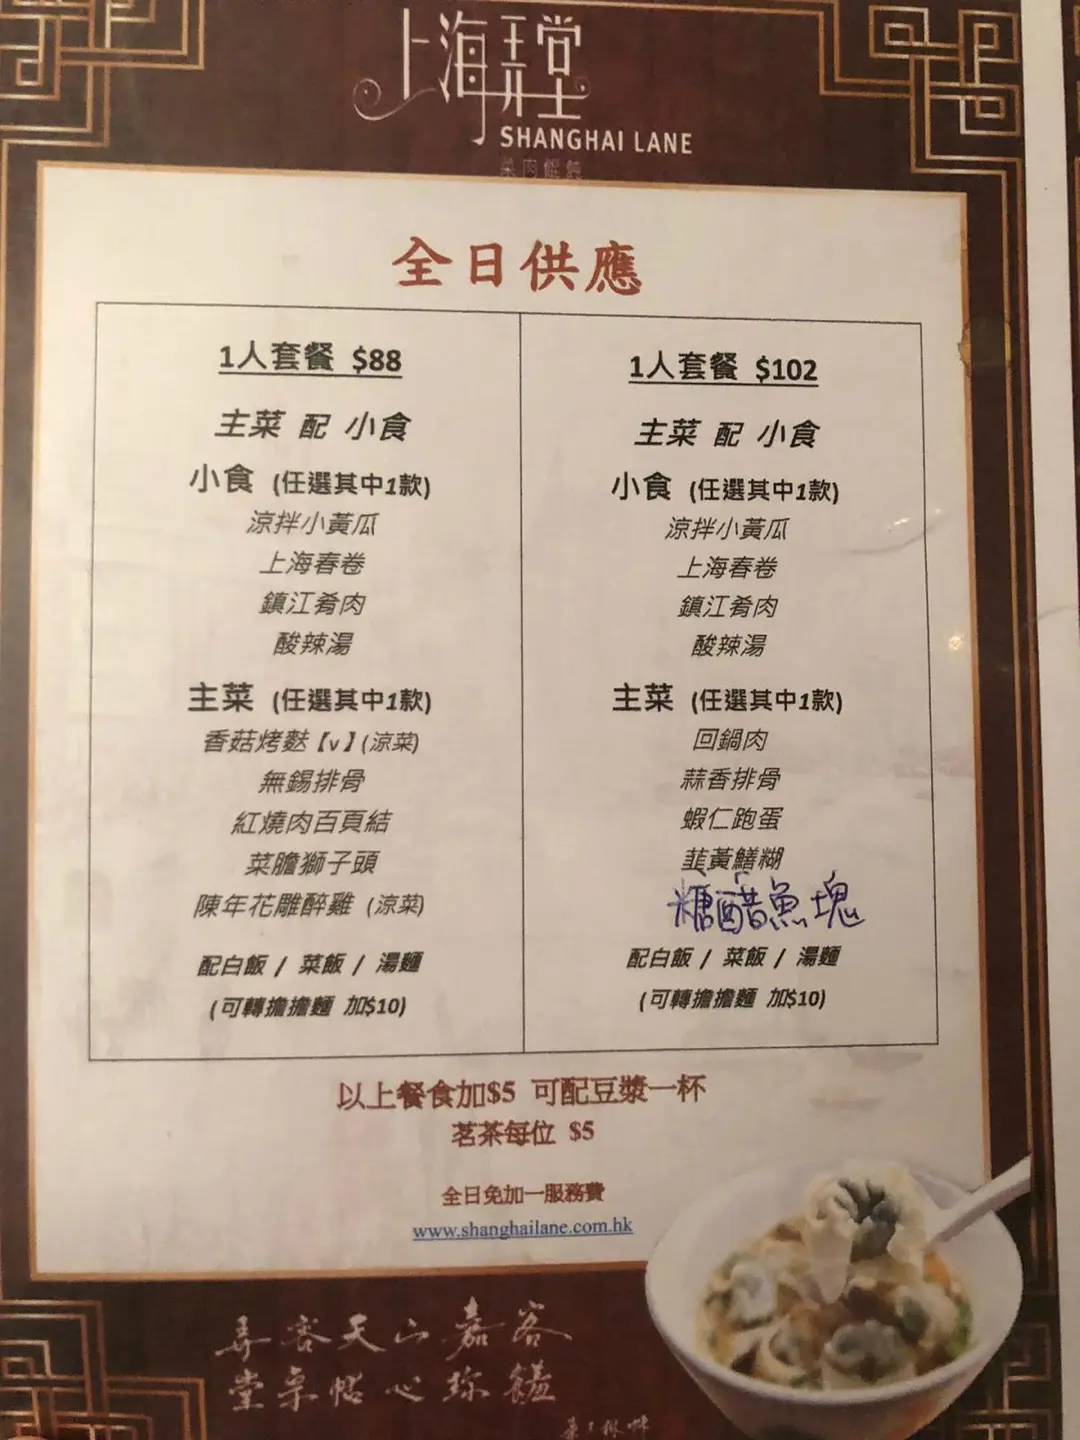 上海弄堂
SHANGHAI LANE
菜肉餛飩
全日供應
1人套餐 $88
主菜 配 小食
小食 (任選其中1款)
涼拌小黃瓜
上海春卷
鎮江肴肉
酸辣湯
主菜 (任選其中1款)
香菇烤麩【v】(涼菜)
無錫排骨
紅燒肉百頁結
菜膽獅子頭
陳年花雕醉雞 (涼菜)
配白飯 / 菜飯 / 湯麵
(可轉擔擔麵 加$10)
1人套餐 $102
主菜 配 小食
小食 (任選其中1款)
涼拌小黃瓜
上海春卷
鎮江肴肉
酸辣湯
主菜 (任選其中1款)
回鍋肉
蒜香排骨
蝦仁跑蛋
韮黃鱔糊
糖醋魚塊
配白飯 / 菜飯 / 湯麵
(可轉擔擔麵 加$10)
以上餐食加$5 可配豆漿一杯
茗茶每位 $5
全日免加一服務費
www.shanghailane.com.hk